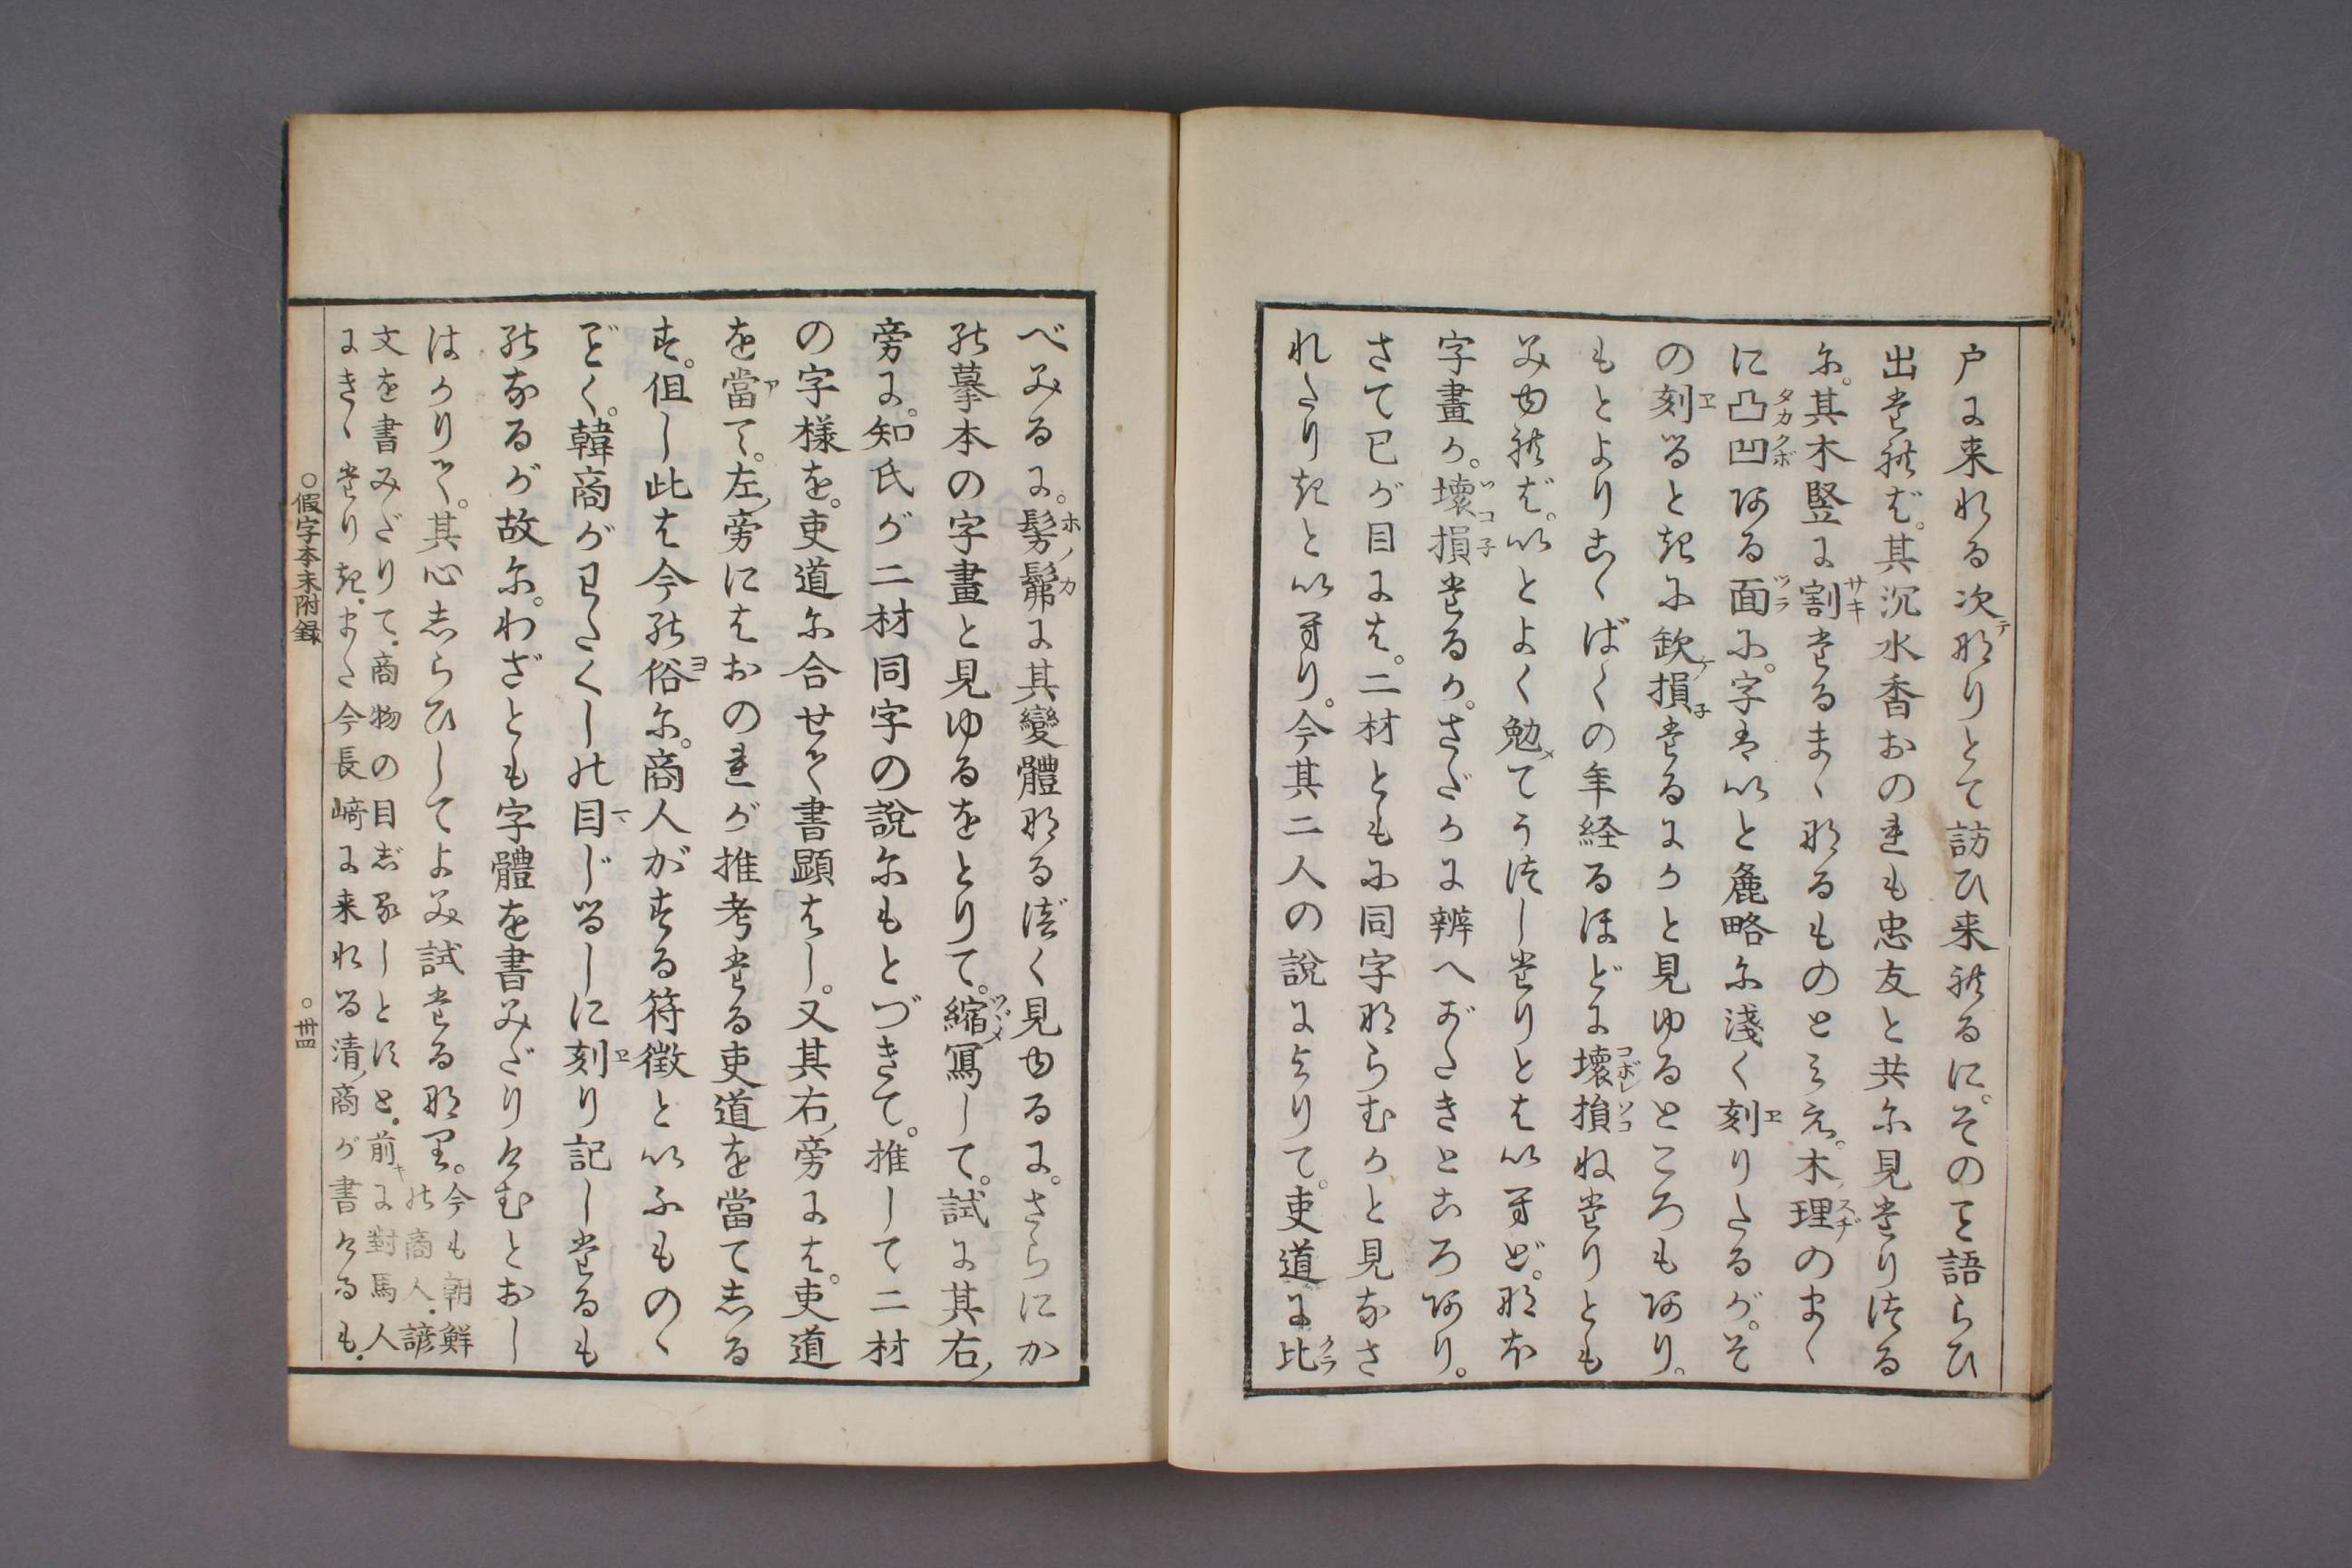 戸に来れる次なりとて訪ひ来れるに。そのこと語らひ
出たれば。其沉水香おのれも忠友と共に見たりつる
に。其木竪に割たるまゝなるものとみえ。木理のまゝ
に凸凹ある面に。字はいと麁略に淺く刻りたるが。そ
の刻るときに欽損たるにかと見ゆるところもあり。
もとよりこゝばくの年経るほどに壞損ねたりとも
みゆれば。いとよく勉てうつしたりとはいへど。なほ
字畫か。壞損たるか。さだかに辨へがたきところあり。
さて已が目には。二材ともに同字ならむかと見なさ
れたりきといへり。今其二人の說によりて。吏道に比
べみるに。髣髴に其變體なるべく見ゆるに。さらにか
の摹本の字畫と見ゆるをとりて。縮寫して。試に其右
旁に。知氏が二材同字の說にもとづきて。推して二材
の字樣を。吏道に合せて書顕はし。又其右旁には。吏道
を當て。左旁にはおのれが推考たる吏道を當てしる
す。但し此は今の俗に。商人がする符徴といふものゝ
ごとく。韓商がわたくしの目じるしに刻り記したるも
のなるが故に。わざとも字體を書みだりけむとおし
はかりて。其心しらひしてよみ試たるなり。今も朝鮮
の商人。諺
文を書みだりて。商物の目じるしとすと。前に對馬人
にきゝたりき。また今長﨑に来れる清商が書けるも。
○假字本末附録
○卅四